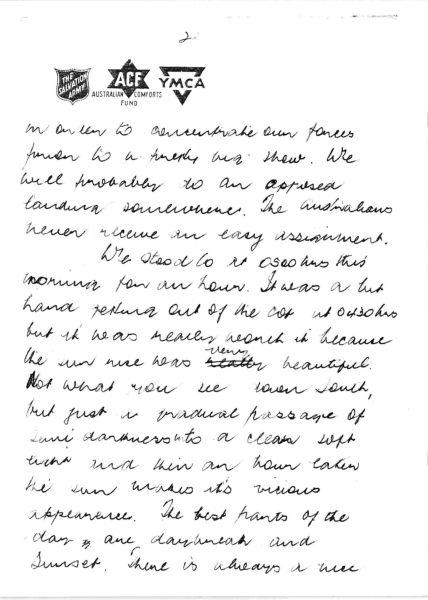 2
THE SALVATION ARMY
ACF
AUSTRALIAN COMFORTS FUND
YMCA
in order to concentrate our forces
prior to a pretty big show. We
will probably do an opposed
landing somewhere. The Australians
never receive an easy assignment.
We stood to at 0500 hrs this
morning for an hour. It was a bit
hard getting out of the cot at 0430 hrs
but it was nearly worth it because
the sun rise was very beautiful.
Not what you see down South,
but just a gradual passage of
semi darkness to a clear soft
light and then an hour later
the sun makes it's vicious
appearance. The best parts of the
day are daybreak and
Sunset. There is always a nice